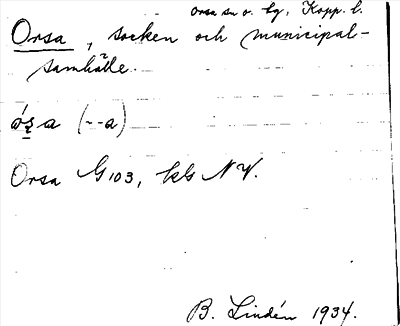 Orsa sn o. kg, Kopp. l.
Orsa, socken och municipal-
samhälle.
ó̱ʂa (--a)
Orsa G 103, kls NV.
B. Lindén 1934.